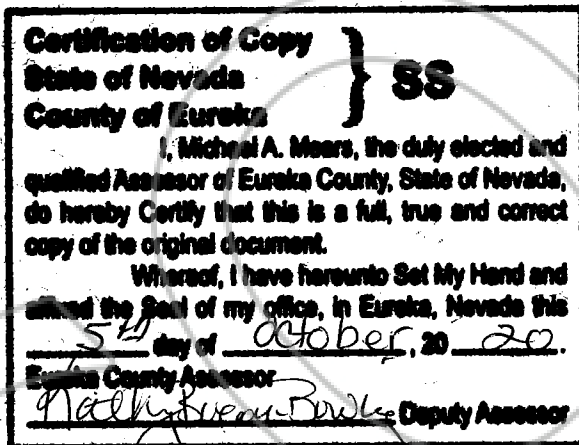 Certification of Copy
State of Nevada
County of Eureka
} SS
I, Michael A. Mears, the duly elected and
qualified Assessor of Eureka County, State of Nevada,
do hereby Certify that this is a full, true and correct
copy of the original document.
Whereof, I have hereunto Set My Hand and
affixed the Seal of my office, in Eureka, Nevada this
5th day of October, 20 20.
Eureka County Assessor
Deputy Assessor